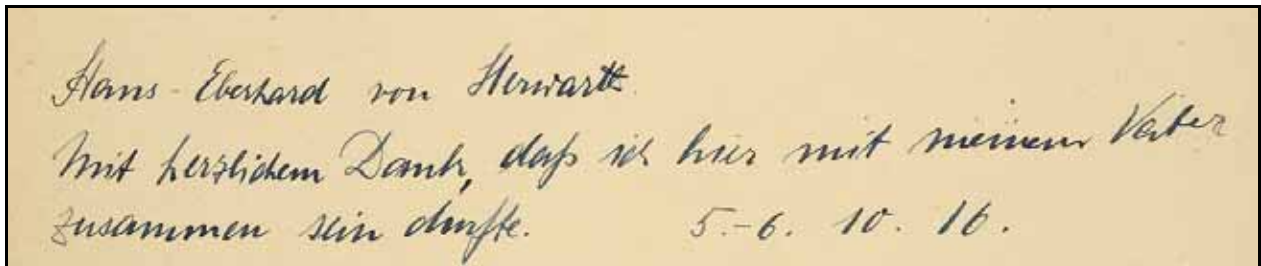 Hans-Eberhard von Herwarth.
Mit herzlichem Dank, daß ich hier mit meinem Vater
zusammen sein durfte. 5.-6. 10. 16.